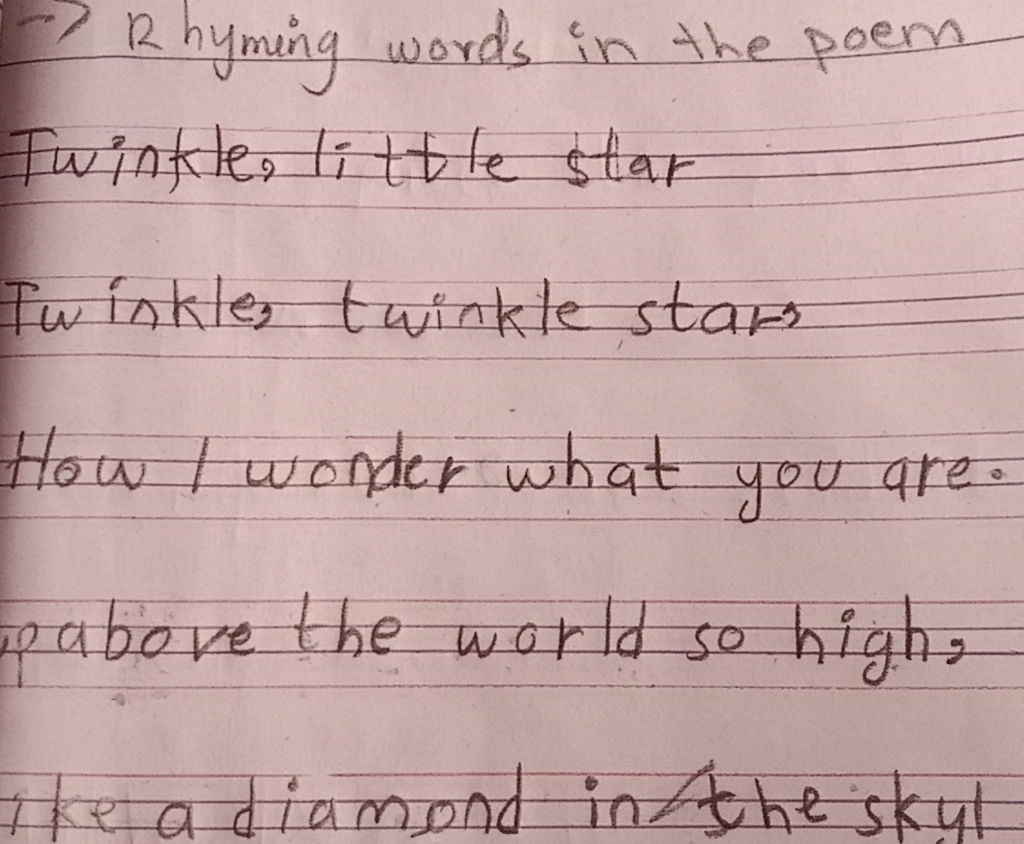 -> Rhyming words in the poem
Twinkle, little star
Twinkle, twinkle star,
How I wonder what you are.
pabove the world so high,
ike a diamond in the sky!